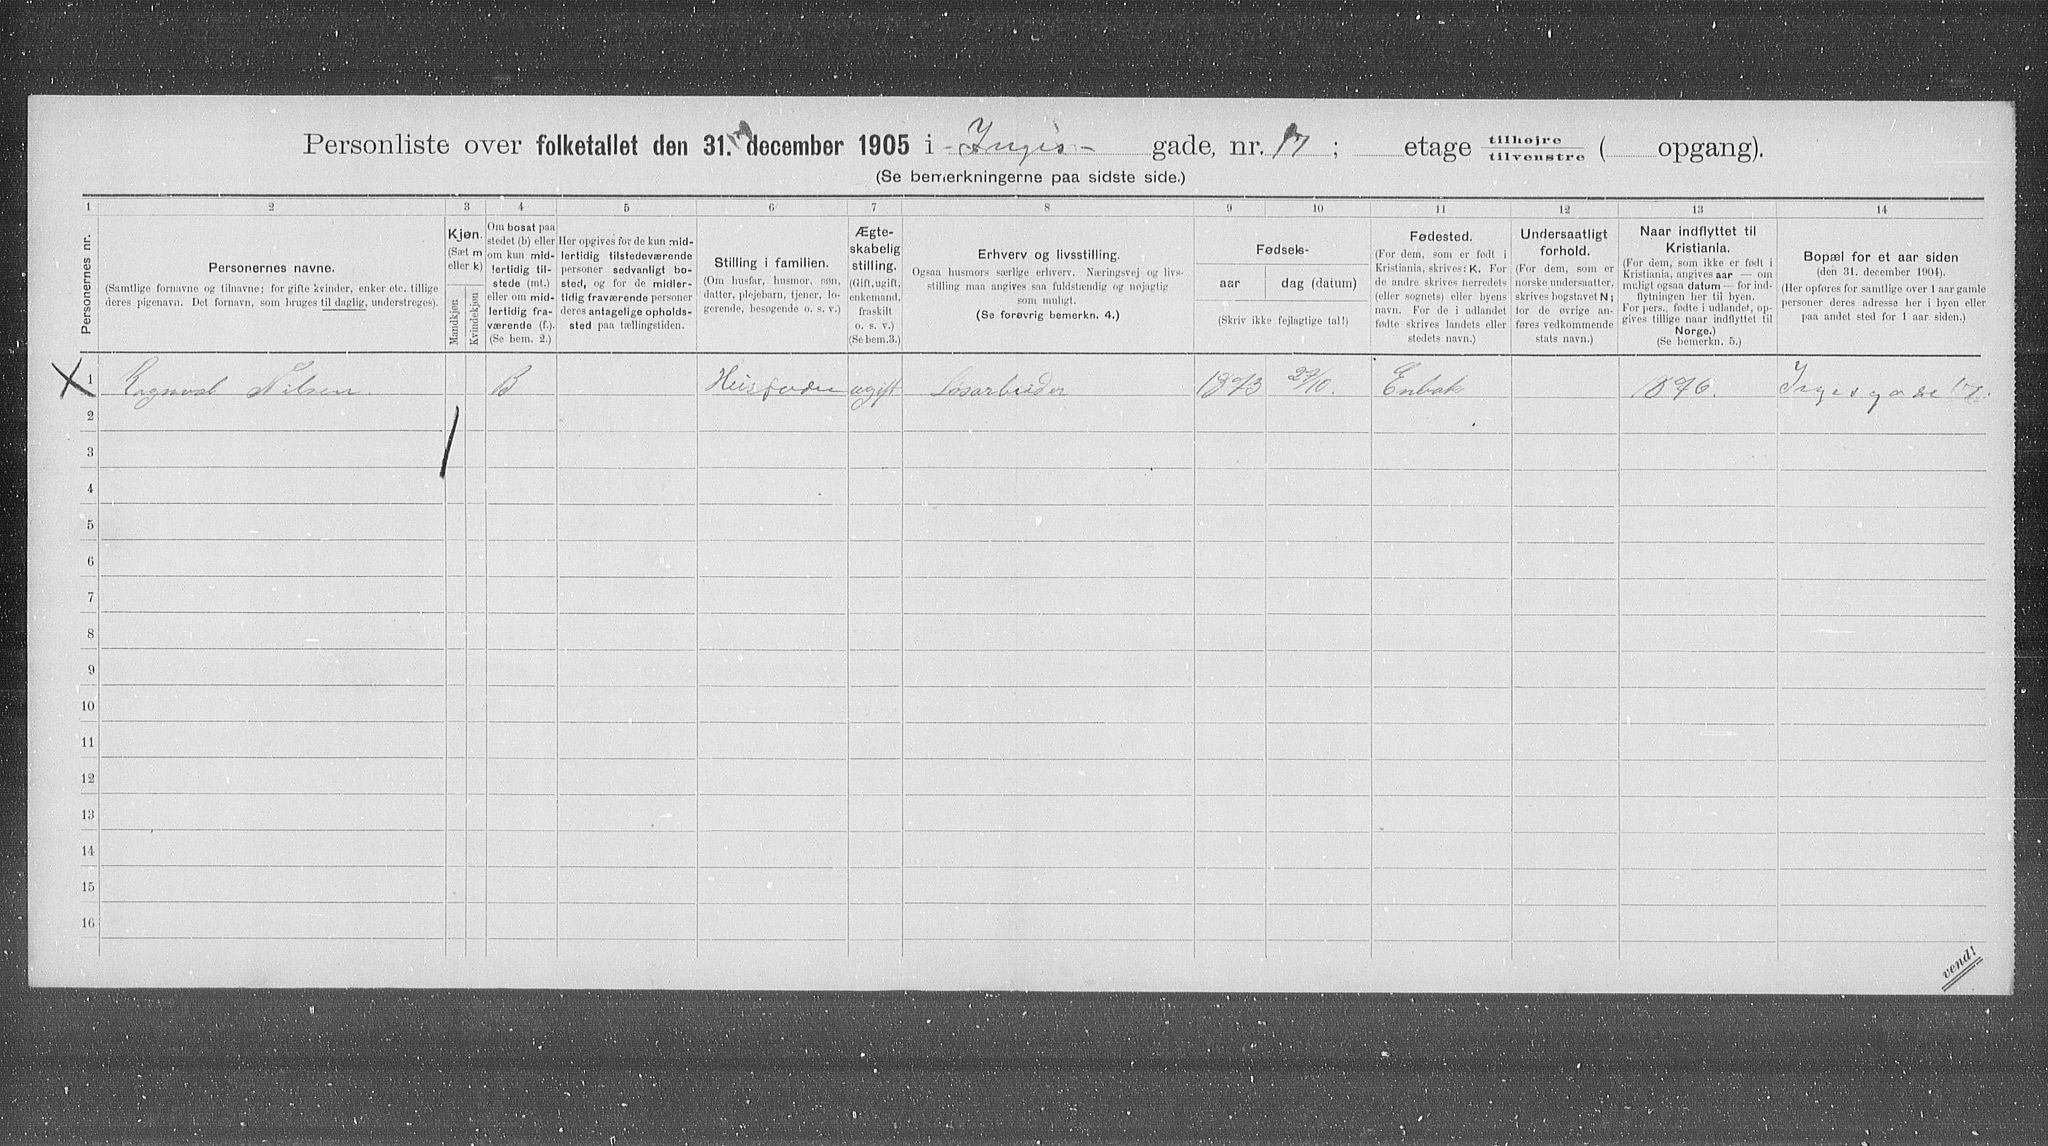 Personliste over folketallet den 31. december 1905 i Inges gade, nr. 17; etage tilhøjre tilvenstre ( opgang).
(Se bemerkningerne paa sidste side.)
1 2 3 4 5 6 7 8 9 10 11 12 13 14
Personernes nr.
Personernes navne.
(Samtlige fornavne og tilnavne; for gifte kvinder, enker etc. tillige
deres pigenavn. Det fornavn, som bruges til daglig, understreges).
Kjøn.
(Sæt m
eller k)
Mandkjøn
Kvindekjøn
Om bosat paa
stedet (b) eller
om kun mid-
lertidig til-
stede (mt.)
eller om mid-
lertidig fra-
værende (f.).
(Se bem. 2.)
Her opgives for de kun mid-
lertidig tilstedeværende
personer sedvanligt bo-
sted, og for de midler-
tidig fraværende personer
deres antagelige opholds-
sted paa tællingstiden.
Stilling i familien.
(Om husfar, husmor, søn,
datter, plejebarn, tjener, lo-
gerende, besøgende o. s. v.)
Ægte-
skabelig
stilling.
(Gift, ugift,
enkemand,
fraskilt
o. s. v.)
(Se bem.3.)
Erhverv og livsstilling.
Ogsaa husmors særlige erhverv. Næringsvej og livs-
stilling maa angives saa fuldstændig og nøjagtig
som muligt.
(Se forøvrig bemerkn. 4.)
Fødsels-
aar dag (datum)
(Skriv ikke fejlagtige tal!)
Fødested.
(For dem, som er født i
Kristiania, skrives: K. For
de andre skrives herredets
(eller sognets) eller byens
navn. For de i udlandet
fødte skrives landets eller
stedets navn.)
Undersaatligt
forhold.
(For dem, som er
norske undersaatter,
skrives bogstavet N;
for de øvrige an-
føres vedkommende
stats navn.)
Naar indflyttet til
Kristiania.
(For dem, som ikke er født i
Kristiania, angives aar — om
muligt ogsaa datum — for ind-
flytningen her til byen.
For pers., fødte i udlandet, op-
gives tillige naar indflyttet til
Norge.)
(Se bemerkn. 5.)
Bopæl for et aar siden
(den 31. december 1904).
(Her opføres for samtlige over 1 aar gamle
personer deres adresse her i byen eller
paa andet sted for 1 aar siden.)
X 1 Ragnval Nilsen. B Husfader ugift Løsarbeider 1873 27/10. Enbak 1896. Ingesgade 17.
2
3
4
5
6
7
8
9
10
11
12
13
14
15
16
vend!